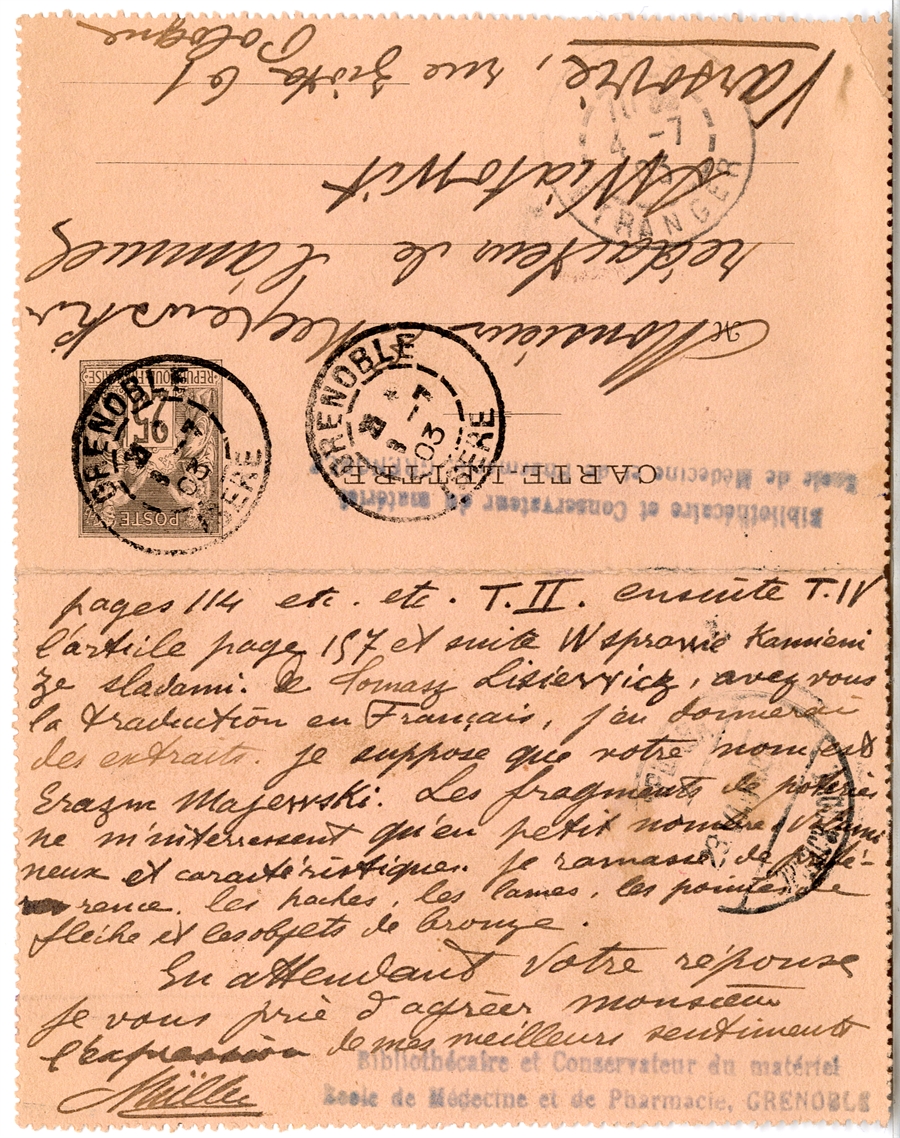 CARTE-LETTRE
RÉPUBLIQUE FRANÇAISE
25
POSTES
GRENOBLE
ISÈRE
-7
03
GRENOBLE
ISÈRE
-7
03
Bibliothécaire et Conservateur du matériel
Ecole de Médecine et de Pharmacie
M Monsieur Majewski
rédacteur de l'annuel
Swiatowit
Varsovie, rue Złota 61
Pologne
4 -7
03
ETRANGER
pages 114 etc. etc. T. II. ensuite T. IV
l'article page 157 et suite W sprawie Kamieni
ze sladami. de Tomasz Lisiewicz, avez vous
la traduction en Français, j'en donnerai
des extraits. je suppose que votre nom est
Erazm Majewski. Les fragments de poteries
ne m'interressent qu'en petit nombre, volumi
neux et caractéristiques. je ramasse de préfé-
rence, les haches, les lames, les pointes de
flèche et les objets de bronze.
En attendant votre réponse
je vous prie d'agréer monsieur
l'expression de mes meilleurs sentiments
Müller
Bibliothécaire et Conservateur du matériel
Ecole de Médecine et de Pharmacie, GRENOBLE